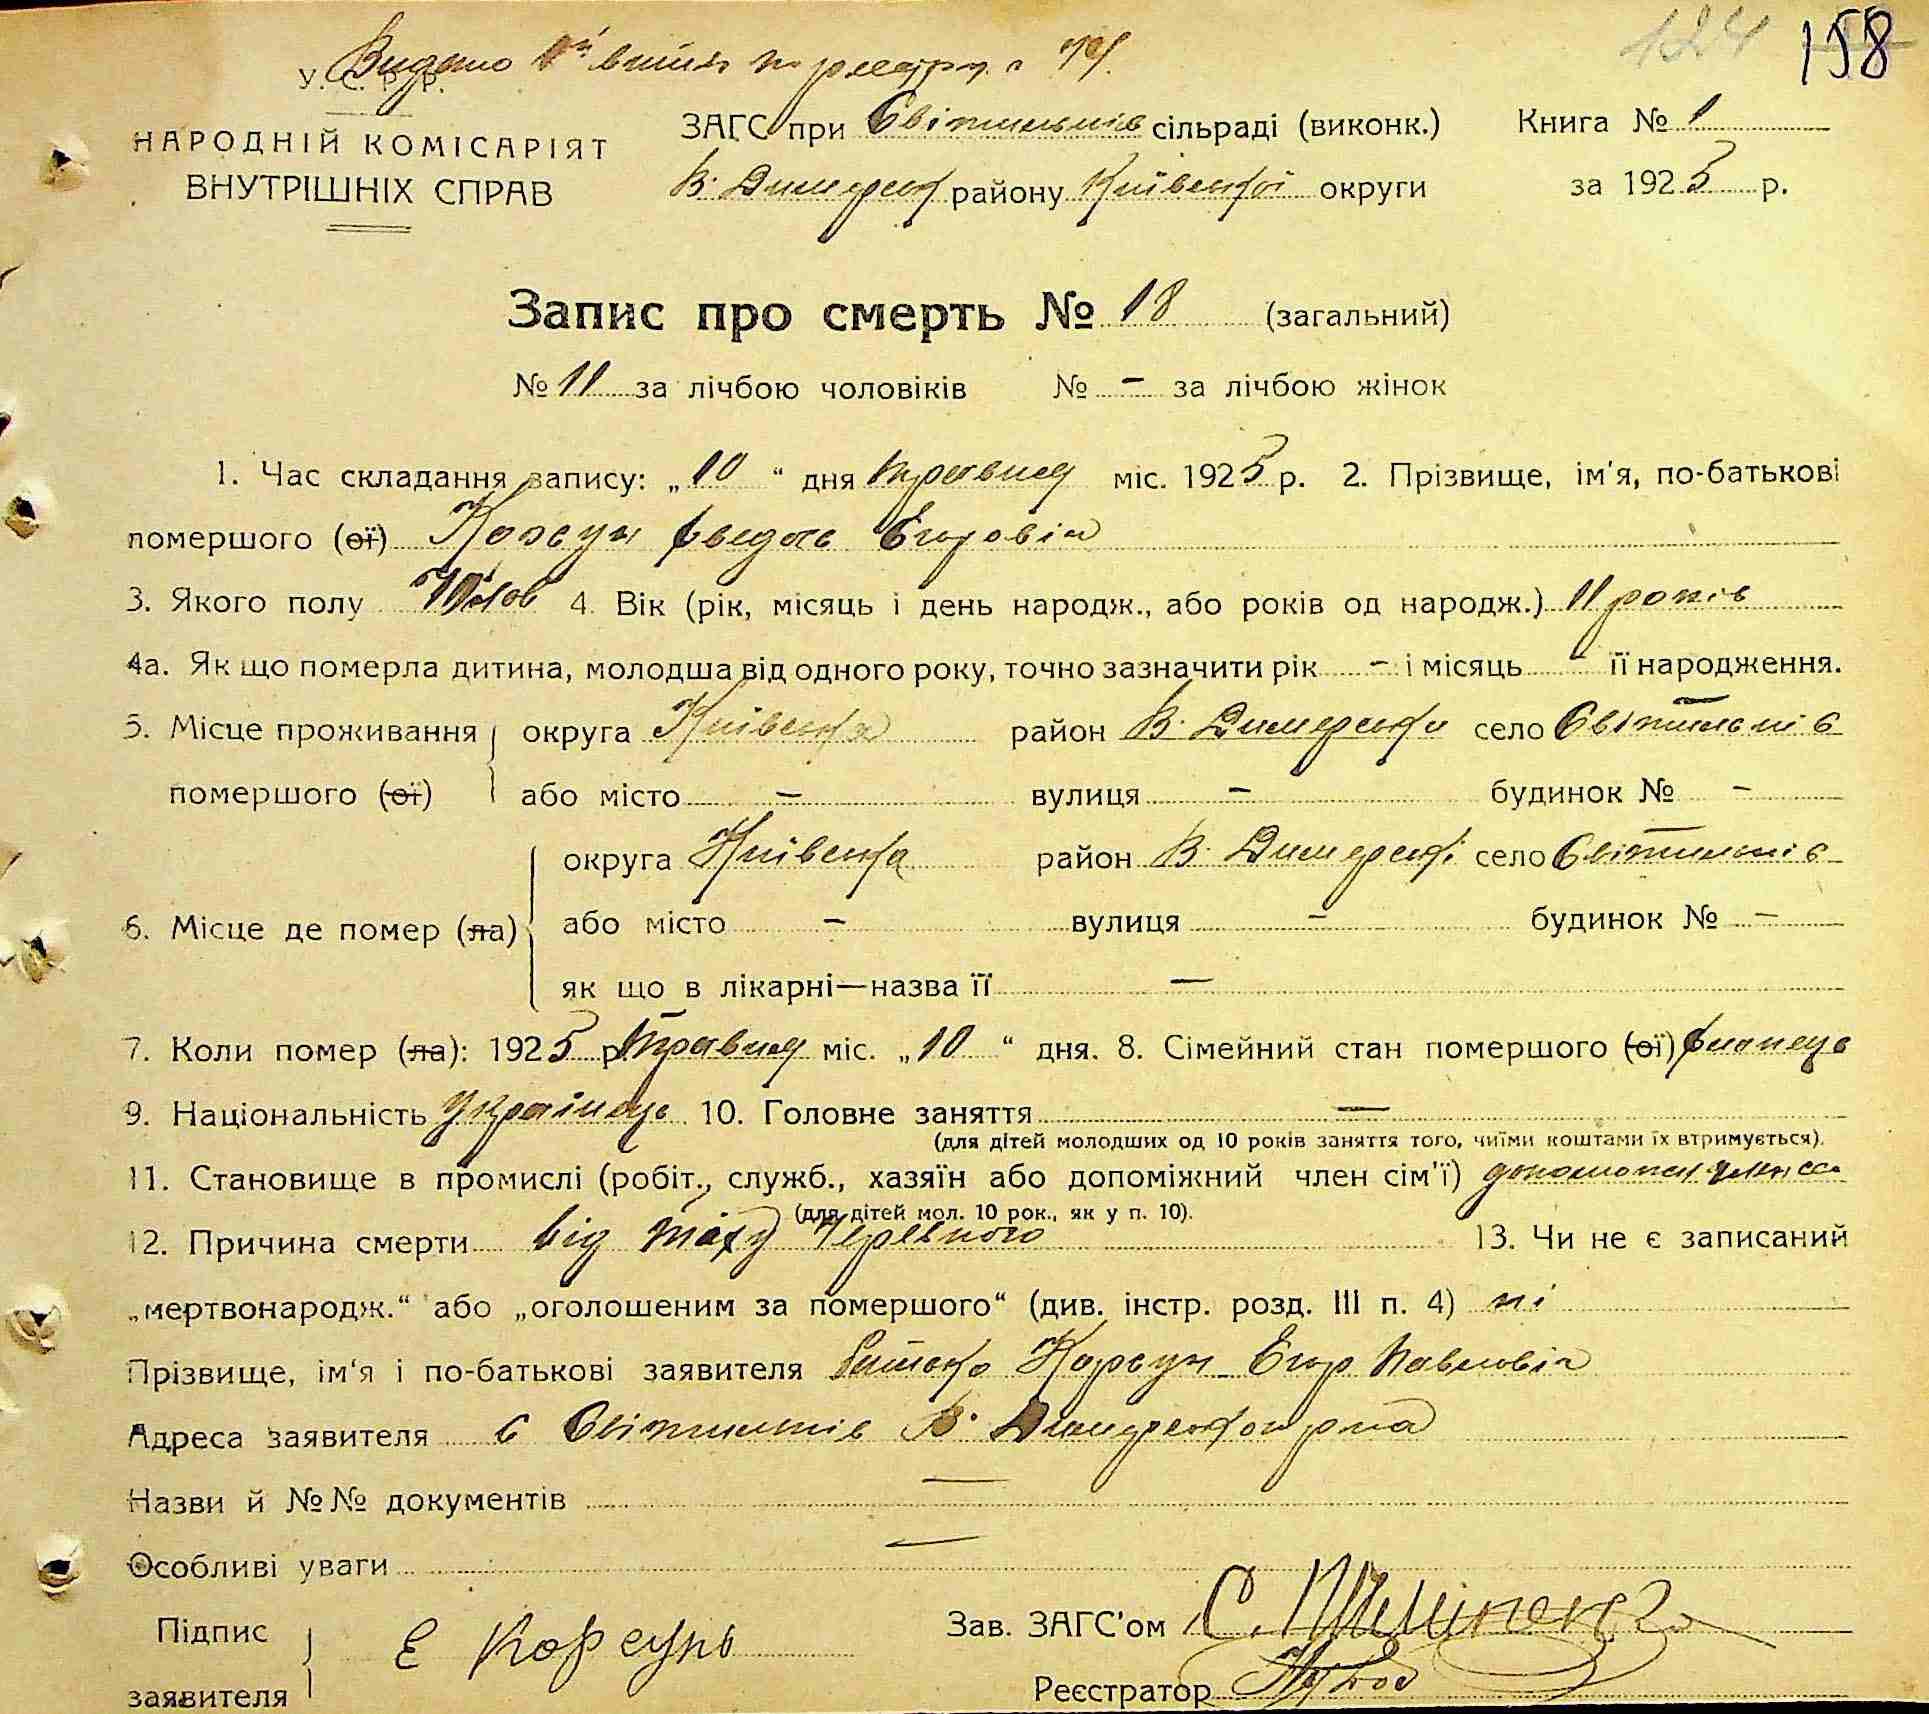 124 158
Видано
У. С. Р. Р.
НАРОДНІЙ КОМІСАРІЯТ
ВНУТРІШНІХ СПРАВ
ЗАГС при Світильнів сільраді (виконк.) Книга № 1
В. Димерськ району Київської округи за 1925 р.
Запис про смерть № 18 (загальний)
№ 11 за лічбою чоловіків № - за лічбою жінок
1. Час складання запису: „10“ дня травня міс. 1925 р. 2. Прізвище, ім'я, по-батькові
помершого (ої) Корсун Егоровіч
3. Якого полу 4. Вік (рік, місяць і день народж., або років од народж.) 11 років
4а. Як що померла дитина, молодша від одного року, точно зазначити рік - і місяць - її народження.
5. Місце проживання округа Київська район В. Димерськи село Світильнів
помершого (ої) або місто - вулиця - будинок № -
округа Київська район В. Димерські село Світильнів
6. Місце де помер (ла) або місто - вулиця - будинок № -
як що в лікарні—назва її —
7. Коли помер (ла): 1925 р. травня міс. „10“ дня. 8. Сімейний стан помершого (ої)
9. Національність Українець 10. Головне заняття —
(для дітей молодших од 10 років заняття того, чиїми коштами їх втримується).
11. Становище в промислі (робіт., служб., хазяїн або допоміжний член сім'ї)
(для дітей мол. 10 рок., як у п. 10).
12. Причина смерти від тіфу Черевного 13. Чи не є записаний
„мертвонародж.“ або „оголошеним за помершого“ (див. інстр. розд. III п. 4) ні
Прізвище, ім'я і по-батькові заявителя батько Корсун Егор Павловіч
Адреса заявителя с Світильнів В. Димерського р-на
Назви й №№ документів —
Особливі уваги —
Підпис заявителя Е Корсунь
Зав. ЗАГС'ом С.
Реєстратор